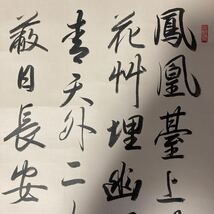 鳳凰臺上
花艸埋幽
青天外二
蔽日長安